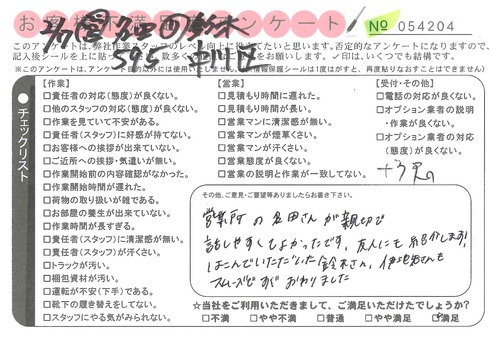 お客様不満足度アンケート № 054204
このアンケートは、弊社作業スタッフのレベル向上に役立てたいと思います。否定的なアンケートになりますので、
※このアンケートは、アンケート目的以外には使用いたしません。
チェックリスト
【作業】
□責任者の対応(態度)が良くない。
□他のスタッフの対応(態度)が良くない。
□作業を見ていて不安がある。
□責任者(スタッフ)に好感が持てない。
□お客様への挨拶が出来ていない。
□ご近所への挨拶・気遣いが無い。
□作業開始前の内容確認がなかった。
□作業開始時間が遅れた。
□荷物の取り扱いが雑である。
□お部屋の養生が出来ていない。
□作業時間が長すぎる。
□責任者(スタッフ)に清潔感が無い。
□責任者(スタッフ)が汗くさい。
□トラックが汚い。
□梱包資材が汚い。
□運転が不安(下手)である。
□靴下の履き替えをしてない。
□スタッフにやる気がみられない。
【営業】
□見積もり時間に遅れた。
□見積もり時間が長い。
□営業マンに清潔感が無い。
□営業マンが煙草くさい。
□営業マンが汗くさい。
□営業態度が良くない。
□営業の説明と作業が一致してない。
【受付・その他】
□電話の対応が良くない。
□オプション業者の説明
・作業が良くない。
□オプション業者の対応
(態度)が良くない。
その他、ご意見・ご要望等ありましたらお書き下さい。
営業所の名田さんが親切で
話しやすくてよかったです。友人にも紹介します!
はこんでいただいた鈴木さん、伊地知さんも
スムーズで すぐ おわりました
☆当社をご利用いただきまして、ご満足いただけたでしょうか?
□不満 □やや不満 □普通 □やや満足 □満足